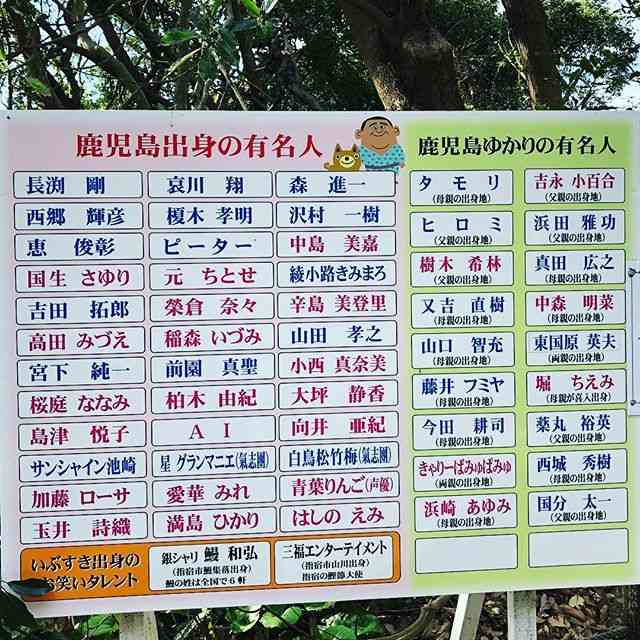 鹿児島出身の有名人
長渕 剛 哀川 翔 森 進一
西郷 輝彦 榎木 孝明 沢村 一樹
恵 俊彰 ピーター 中島 美嘉
国生 さゆり 元 ちとせ 綾小路きみまろ
吉田 拓郎 榮倉 奈々 辛島 美登里
高田 みづえ 稲森 いづみ 山田 孝之
宮下 純一 前園 真聖 小西 真奈美
桜庭 ななみ 柏木 由紀 大坪 静香
島津 悦子 AI 向井 亜紀
サンシャイン池崎 星 グランマニエ(氣志團) 白鳥松竹梅(氣志團)
加藤 ローサ 愛華 みれ 青葉りんご(声優)
玉井 詩織 満島 ひかり はしの えみ
いぶすき出身の
お笑いタレント
銀シャリ 鰻 和弘
(指宿市鰻集落出身)
鰻の姓は全国で6軒
三福エンターテイメント
(指宿市山川出身)
指宿の鰹節大使
鹿児島ゆかりの有名人
タモリ
(母親の出身地)
吉永 小百合
(父親の出身地)
ヒロミ
(父親の出身地)
浜田 雅功
(父親の出身地)
樹木 希林
(父親の出身地)
真田 広之
(母親の出身地)
又吉 直樹
(母親の出身地)
中森 明菜
(母親の出身地)
山口 智充
(母親の出身地)
東国原 英夫
(両親の出身地)
藤井 フミヤ
(母親の出身地)
堀 ちえみ
(母親が喜入出身)
今田 耕司
(母親の出身地)
薬丸 裕英
(父親の出身地)
きゃりーぱみゅぱみゅ
(両親の出身地)
西城 秀樹
(母親の出身地)
浜崎 あゆみ
(母親の出身地)
国分 太一
(父親の出身地)